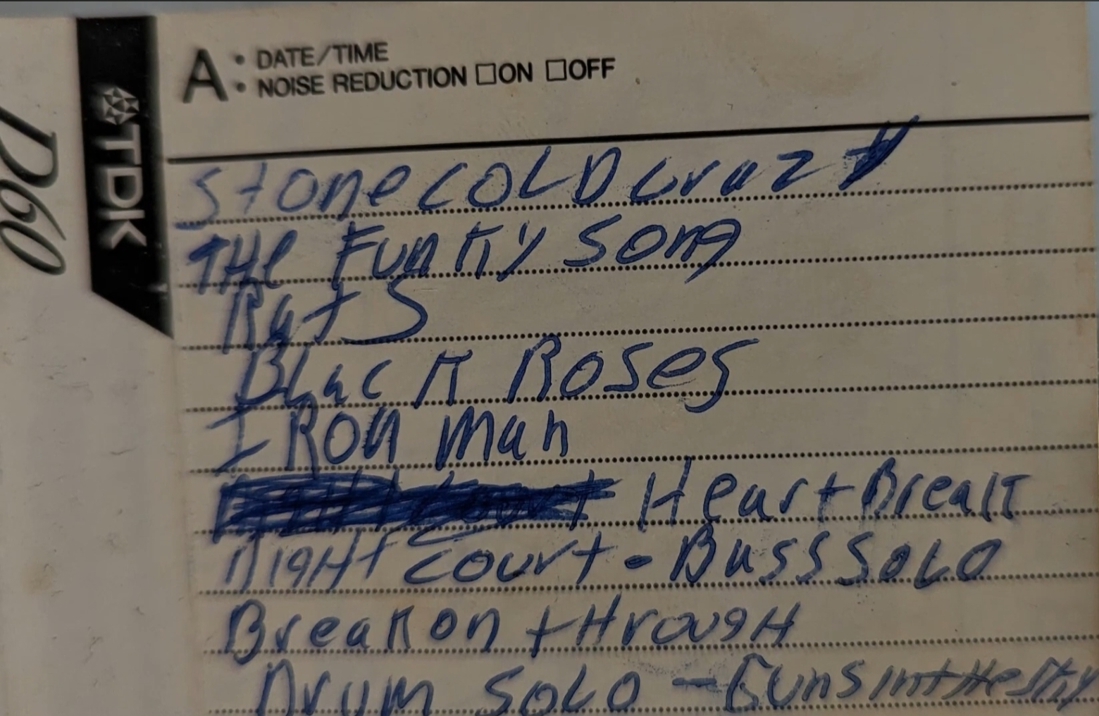 A • DATE/TIME
• NOISE REDUCTION □ON □OFF
TDK
D60
Stone COLD Crazy
THe Funky Song
Rats
Black Roses
IRon man
HeartBreak
NigHt court - Bass SoLo
Break on tHrougH
Drum SoLo - Guns in tHe Sky